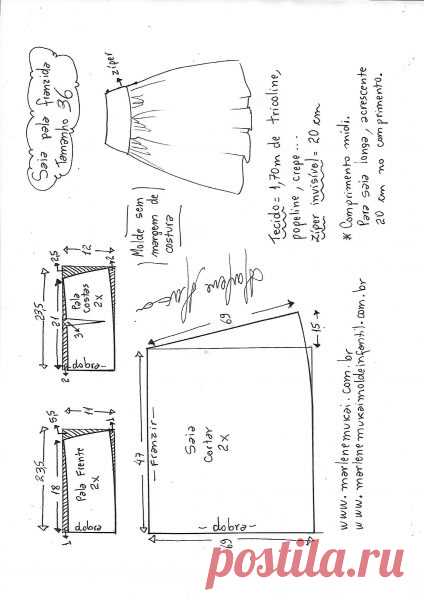 Saia pala franzida
Tamanho 36
zíper
Tecido = 1,70m de tricoline,
popeline, crepe...
zíper invisível = 20 cm
* Comprimento midi.
Para saia longa, acrescente
20 cm no comprimento.
Molde sem
margem de
costura
23,5
2,5
21
12
2
3
2
Pala
costas
2x
dobra
23,5
5,5
18
11
1
1
Pala Frente
2x
dobra
47
Franzir
Saia
Cortar
2x
dobra
69
69
15
www.marlenemukai.com.br
www.marlenemukaimoldeinfantil.com.br
postila.ru